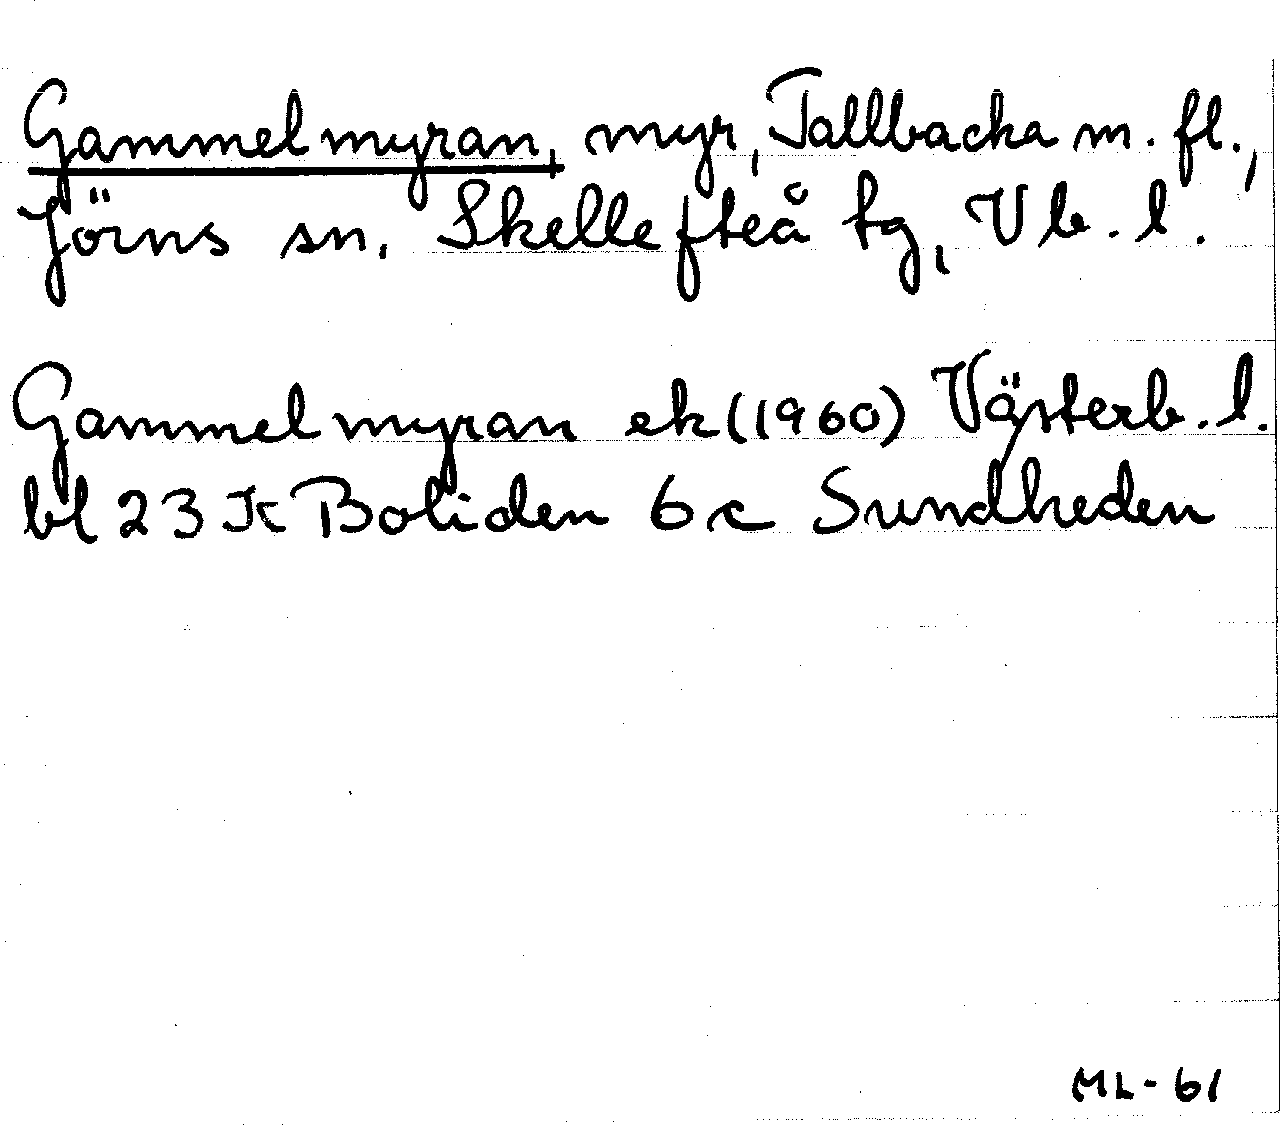 Gammelmyran, myr, Tallbacka m. fl.,
Jörns sn. Skellefteå tg, Vb. l.
Gammelmyran ek (1960) Västerb. l.
bl 23 K Boliden 6 c Sundheden
ML-61